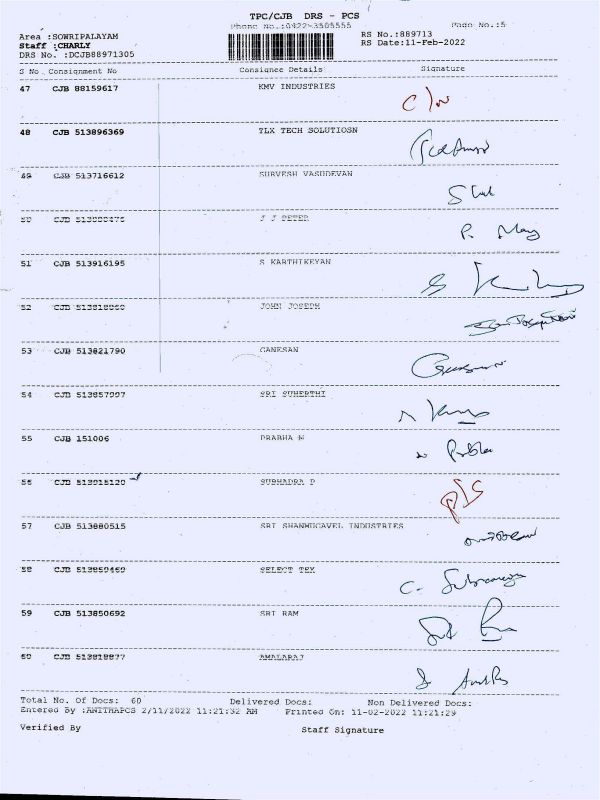 TPC/CJB DRS - PCS
Phone No.:0422-3505555 Page No.:5
Area :SOWRIPALAYAM RS No.:889713
Staff :CHARLY RS Date:11-Feb-2022
DRS No. :DCJB88971305
S No. Consignment No Consignee Details Signature
47 CJB 88159617 KMV INDUSTRIES
48 CJB 513896369 TLX TECH SOLUTIOSN
49 CJB 513716612 SURVESH VASUDEVAN
50 CJB J J PETER
51 CJB 513916195 S KARTHIKEYAN S
52 CJB JOHN JOSEPH
53 CJB 513821790 GANESAN
54 CJB 513857997 SRI SUHERTHI
55 CJB 151006 PRABHA M Prabha
56 CJB 513915120 SUBHADRA P
57 CJB 513880515 SRI SHANMUGAVEL INDUSTRIES
58 CJB 513859469 SELECT TEX
59 CJB 513850692 SRI RAM
60 CJB 513818877 AMALARAJ
Total No. Of Docs: 60 Delivered Docs: Non Delivered Docs:
Entered By :ANITHAPCS 2/11/2022 11:21:32 AM Printed On: 11-02-2022 11:21:29
Verified By Staff Signature